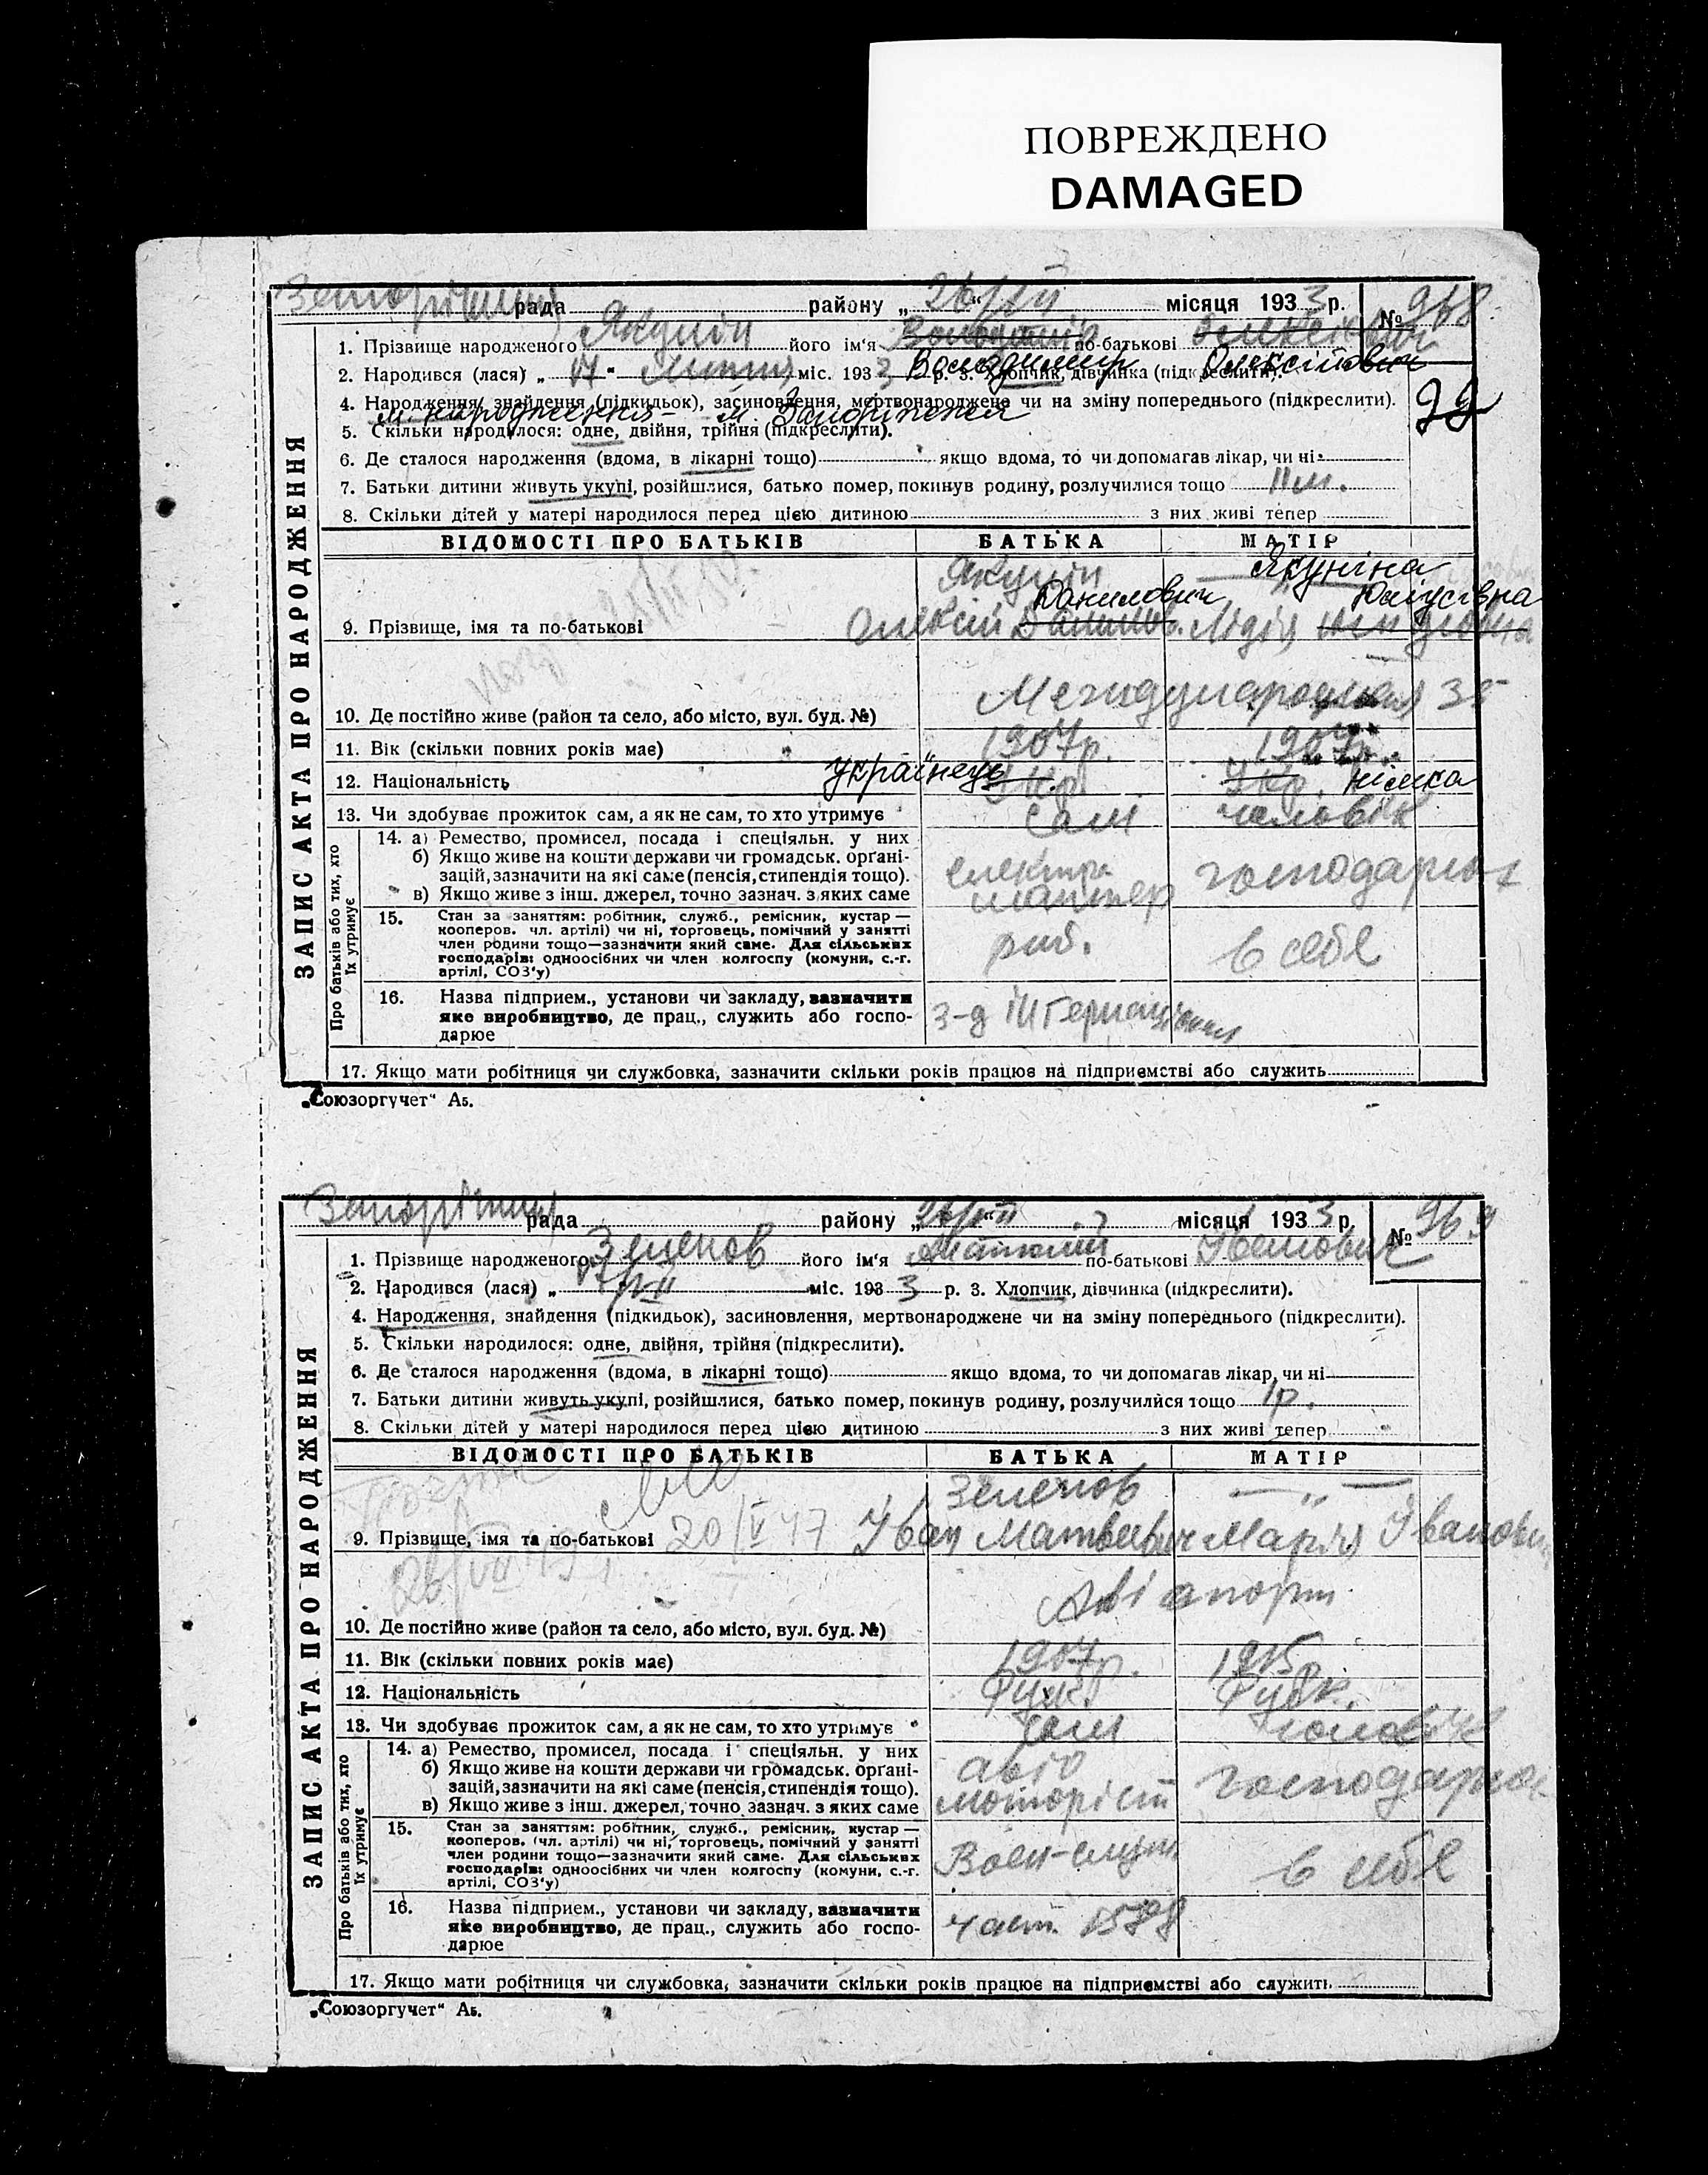 ПОВРЕЖДЕНО
DAMAGED
рада району „26/VII“ місяця 1933 р. № 968
1. Прізвище народженого Якунін його ім‘я по-батькові
Володимир Олексійович
2. Народився (лася) „17“ міс. 1933 р. 3. Хлопчик, дівчинка (підкреслити).
4. Народження, знайдення (підкидьок), засиновлення, мертвонароджене чи на зміну попереднього (підкреслити).
99
м. народження – м. Запоріжжя
5. Скільки народилося: одне, двійня, трійня (підкреслити).
6. Де сталося народження (вдома, в лікарні тощо) якщо вдома, то чи допомагав лікар, чи ні
7. Батьки дитини живуть укупі, розійшлися, батько помер, покинув родину, розлучилися тощо 11 м.
8. Скільки дітей у матері народилося перед цією дитиною з них живі тепер
ЗАПИС АКТА ПРО НАРОДЖЕННЯ
ВІДОМОСТІ ПРО БАТЬКІВ БАТЬКА МАТІР
Якунін Якуніна
Данилович
9. Прізвище, імя та по-батькові Олексій Лідія
10. Де постійно живе (район та село, або місто, вул. буд. №)
11. Вік (скільки повних років має) 1907р. 1907р.
12. Національність українець Укр. Укр. німка
13. Чи здобуває прожиток сам, а як не сам, то хто утримує сам чоловік
Про батьків або тих, хто їх утримує
14. а) Ремество, промисел, посада і спеціяльн. у них
б) Якщо живе на кошти держави чи громадськ. орґані-
зацій, зазначити на які саме (пенсія, стипендія тощо).
в) Якщо живе з інш. джерел, точно зазнач. з яких саме
електро
монтер
15. Стан за заняттям: робітник, служб., ремісник, кустар —
кооперов. чл. артілі) чи ні, торговець, помічний у занятті
член родини тощо—зазначити який саме. Для сільських
господарів: одноосібних чи член колгоспу (комуни, с.-г.
артілі, СОЗ‘у)
роб. в себе
16. Назва підприєм., установи чи закладу, зазначити
яке виробництво, де прац., служить або госпо-
дарює
17. Якщо мати робітниця чи службовка, зазначити скільки років працює на підприємстві або служить
„Союзоргучет“ А5.
рада району „26/VII“ місяця 1933 р. № 969
1. Прізвище народженого його ім‘я по-батькові Іванович
2. Народився (лася) „ міс. 1933 р. 3. Хлопчик, дівчинка (підкреслити).
4. Народження, знайдення (підкидьок), засиновлення, мертвонароджене чи на зміну попереднього (підкреслити).
5. Скільки народилося: одне, двійня, трійня (підкреслити).
6. Де сталося народження (вдома, в лікарні тощо) якщо вдома, то чи допомагав лікар, чи ні
7. Батьки дитини живуть укупі, розійшлися, батько помер, покинув родину, розлучилися тощо 1р.
8. Скільки дітей у матері народилося перед цією дитиною з них живі тепер
ЗАПИС АКТА ПРО НАРОДЖЕННЯ
ВІДОМОСТІ ПРО БАТЬКІВ БАТЬКА МАТІР
Зеленов — „ —
9. Прізвище, імя та по-батькові 20/V 47 Іван Матвеевич Марія
Авіапорт
10. Де постійно живе (район та село, або місто, вул. буд. №)
11. Вік (скільки повних років має) 1907р. 1915р.
12. Національність
13. Чи здобуває прожиток сам, а як не сам, то хто утримує сам чоловік
Про батьків або тих, хто їх утримує
14. а) Ремество, промисел, посада і спеціяльн. у них
б) Якщо живе на кошти держави чи громадськ. орґані-
зацій, зазначити на які саме (пенсія, стипендія тощо).
в) Якщо живе з інш. джерел, точно зазнач. з яких саме
авіо
моторіст
15. Стан за заняттям: робітник, служб., ремісник, кустар —
кооперов. (чл. артілі) чи ні, торговець, помічний у занятті
член родини тощо—зазначити який саме. Для сільських
господарів: одноосібних чи член колгоспу (комуни, с.-г.
артілі, СОЗ‘у)
в себе
16. Назва підприєм., установи чи закладу, зазначити
яке виробництво, де прац., служить або госпо-
дарює
17. Якщо мати робітниця чи службовка, зазначити скільки років працює на підприємстві або служить
„Союзоргучет“ А5.